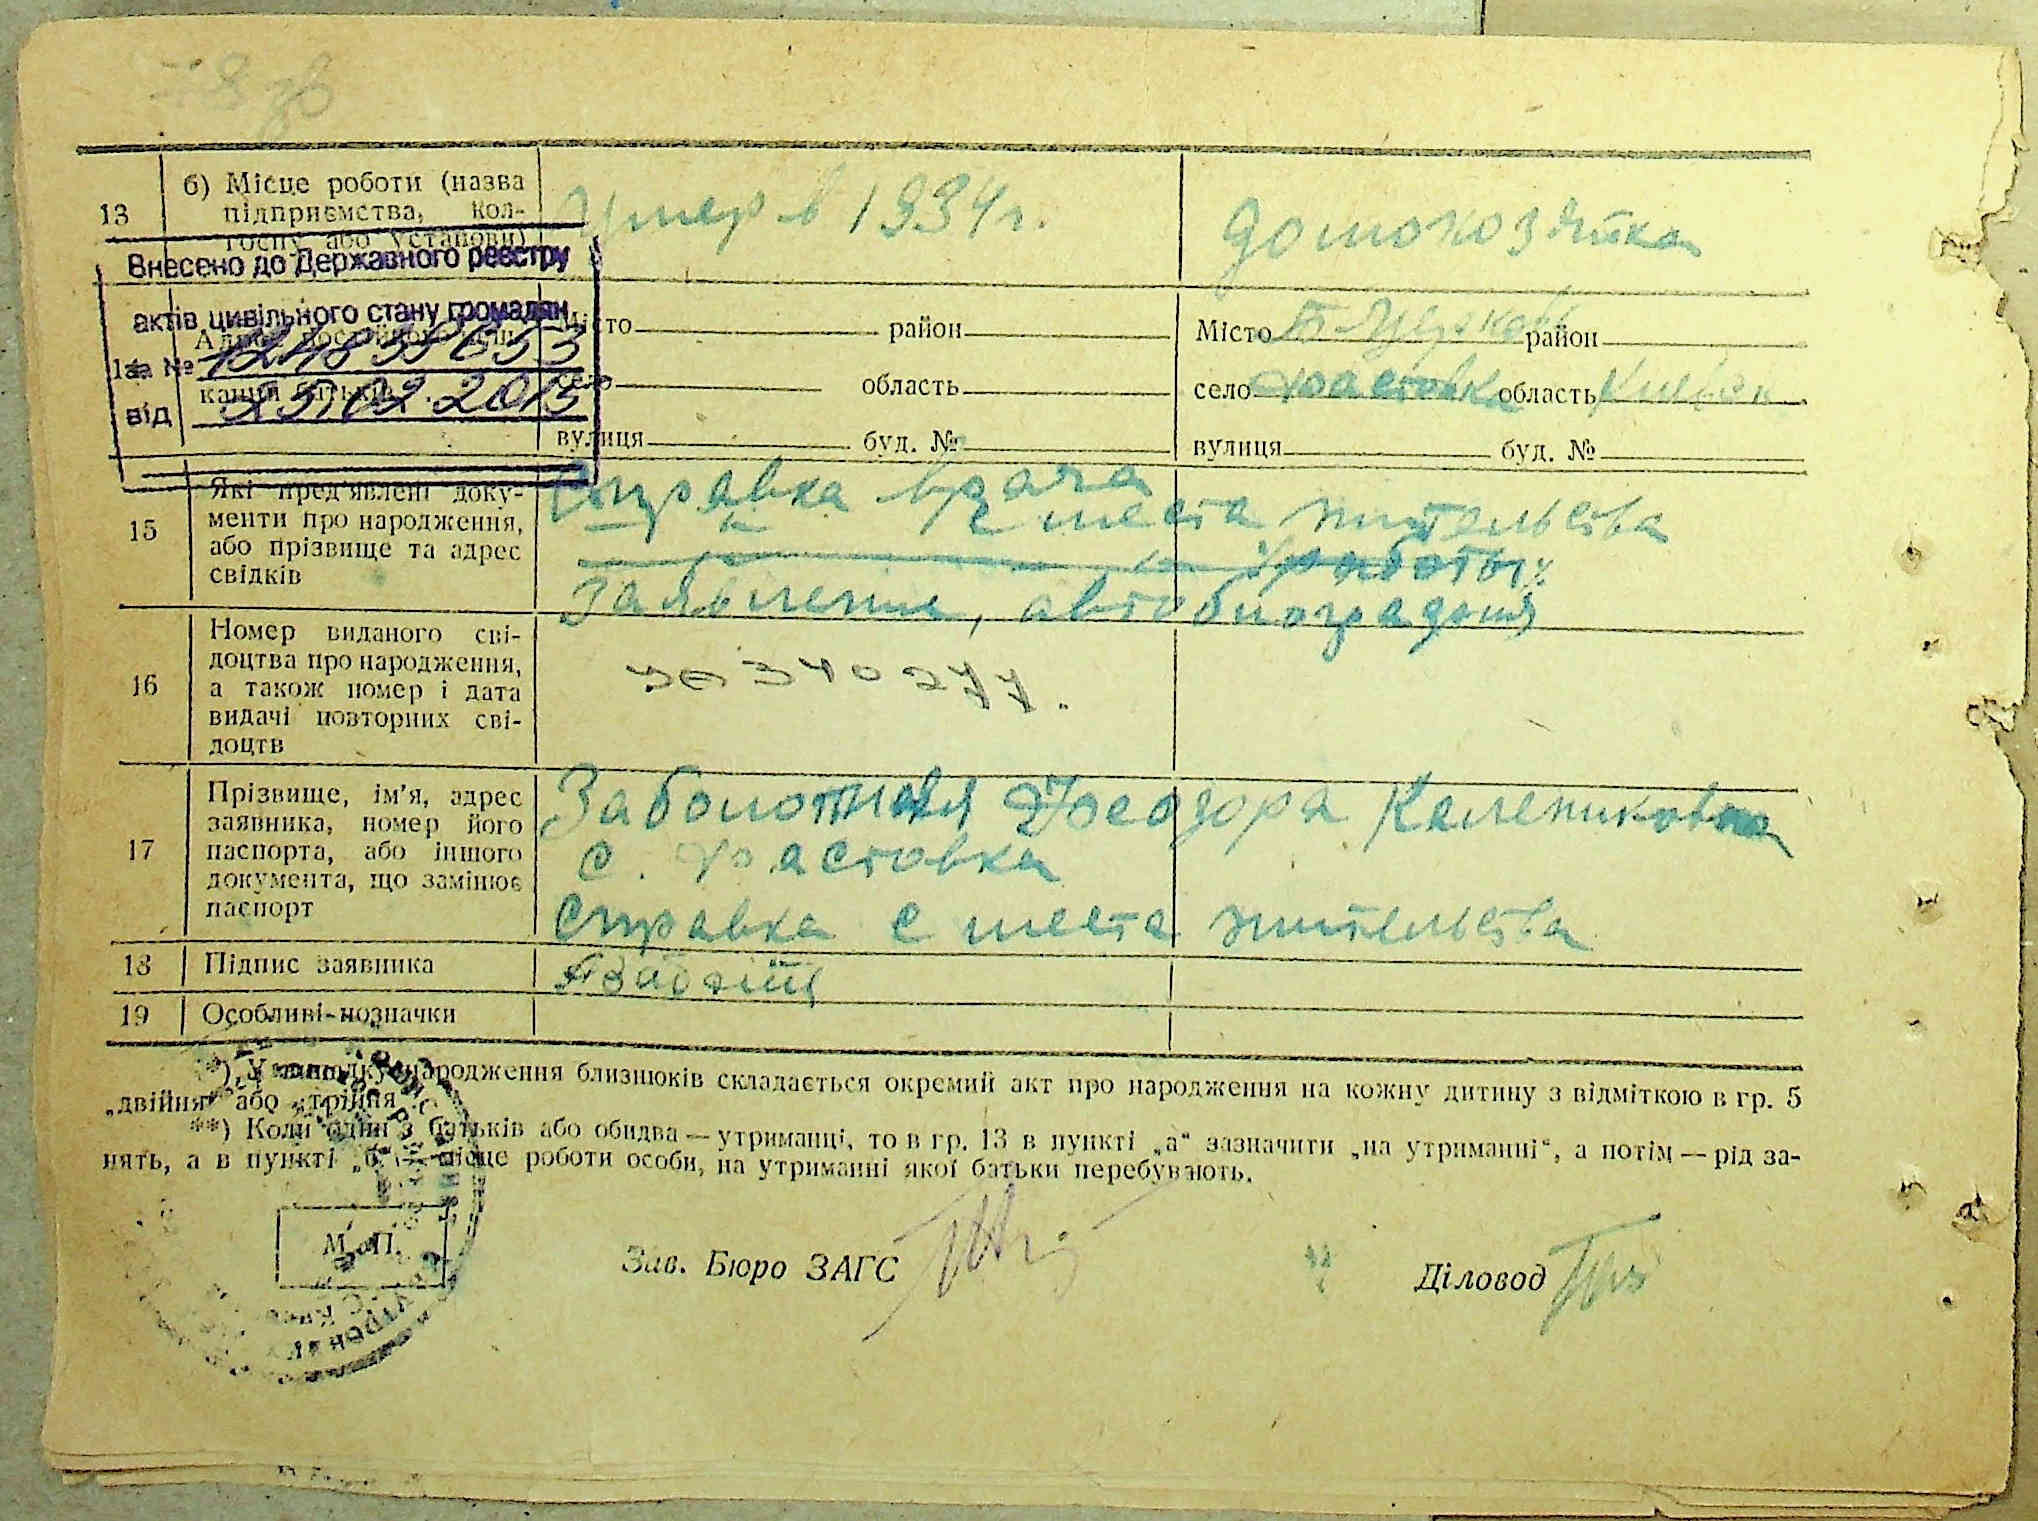 13
б) Місце роботи (назва
підприємства, кол-
госпу або установи)
умер в 1934 г.
домохозяйка
Внесено до Державного реєстру
актів цивільного стану громадян
за №
від 25.02.2013
Місто район
село область
вулиця буд. №
Місто Б-Церковь район
село Фастовка область Киевск
вулиця буд. №
15
Які пред'явлені доку-
менти про народження,
або прізвище та адрес
свідків
Справка врача
" с места жительства
" " работы
Заявление, автобиография
16
Номер виданого сві-
доцтва про народження,
а також номер і дата
видачі повторних сві-
доцтв
340277.
17
Прізвище, ім'я, адрес
заявника, номер його
паспорта, або іншого
документа, що замінює
паспорт
Заболотная Феодора Калениковна
с. Фастовка
Справка с места жительства
18
Підпис заявника
19
Особливі позначки
*) У випадку народження близнюків складається окремий акт про народження на кожну дитину з відміткою в гр. 5
„двійня“ або „трійня“.
**) Коли один з батьків або обидва — утриманці, то в гр. 13 в пункті „а“ зазначити „на утриманні“, а потім — рід за-
нять, а в пункті „б“ — місце роботи особи, на утриманні якої батьки перебувають.
М. П.
Зав. Бюро ЗАГС
Діловод